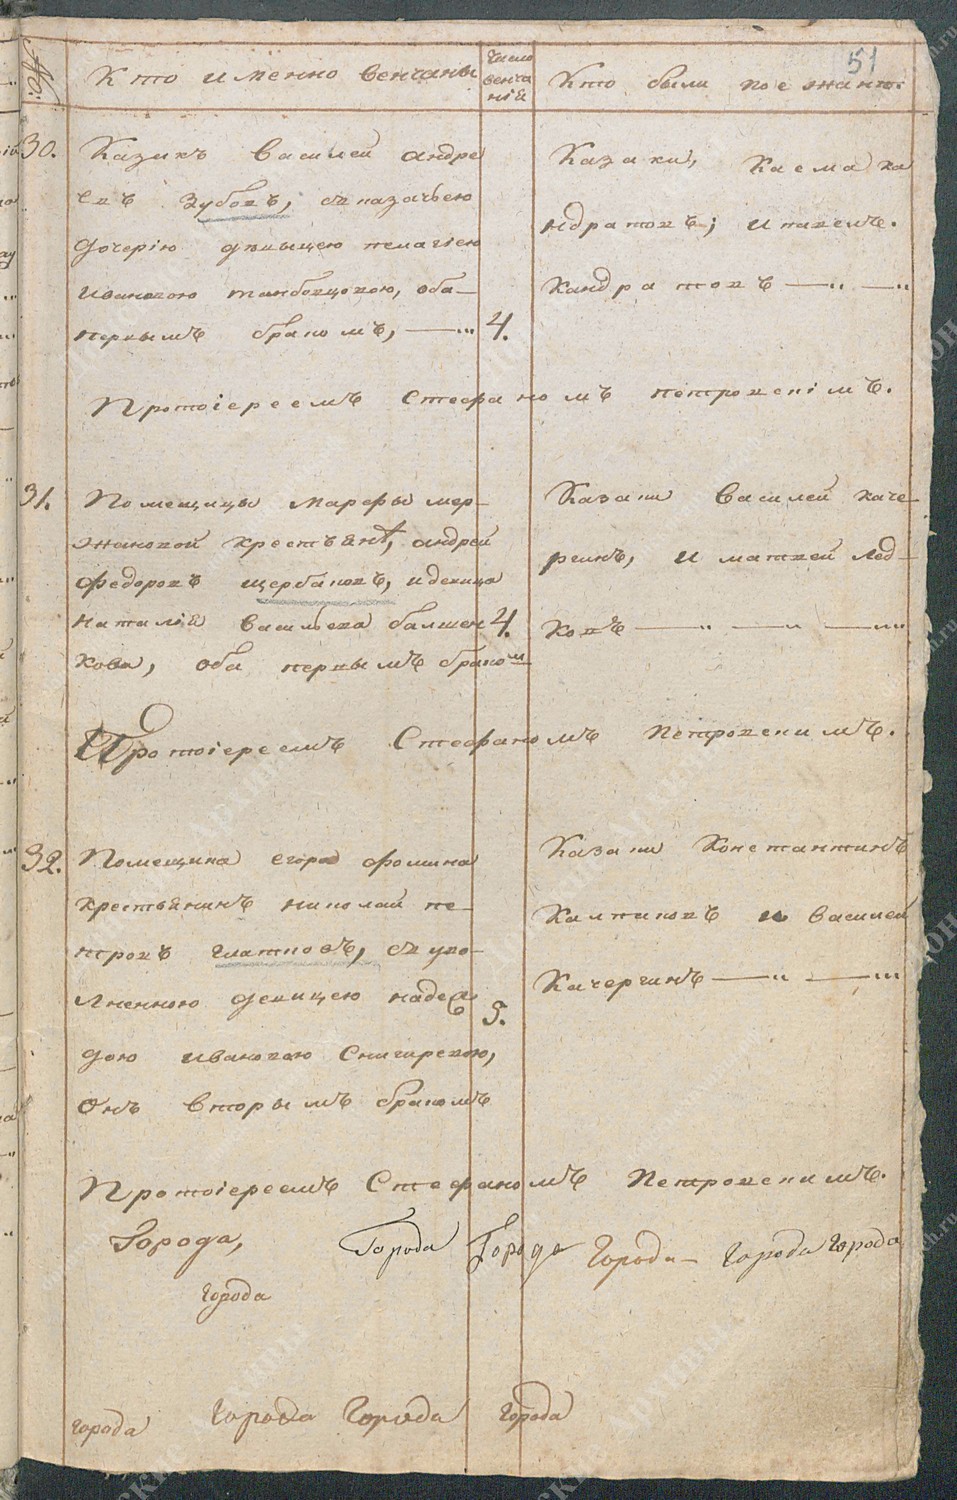 №:
Кто именно венчаны
Число венча нiя
Кто были поезжанѣ.
51
30.
Казакъ Василей Андре
евъ Зубовъ, съ казачьею
дочерiю дѣвицею Пелагiею
Ивановою Танбовцовою, оба
первымъ бракомъ,
4.
Казаки, Каема Ка
ндратовъ; и Павелъ.
Кандратовъ
Протоiереемъ Стефаномъ Петровскiмъ.
31.
Помещицы Марефы Мер-
жановой крестьянѣ, Андрей
Федоровъ Щербаковъ, и девица
Наталiя Васильева Балшен
кова, оба первымъ браком
4.
Казаки Василей Каче-
ргинъ, и Матвей Лед-
ковъ
Протоiереемъ Стефаномъ Петровскимъ.
32.
Помещика Егора Фомина
крестьянинъ Николай Пе-
тровъ Глатковъ, съ уво-
лненною девицею Надеж
дою Ивановою Снигиревою,
онъ вторымъ бракомъ
3.
Казаки Константинъ
Калпиковъ и Василей
Качергинъ
Протоiереемъ Стефаномъ Петровскимъ.
Города, Города Города Города Города Города
Города
Города Города Города Города